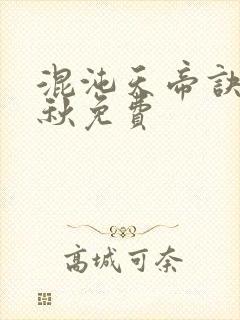 混沌天帝訣
秋免費
高城可奈